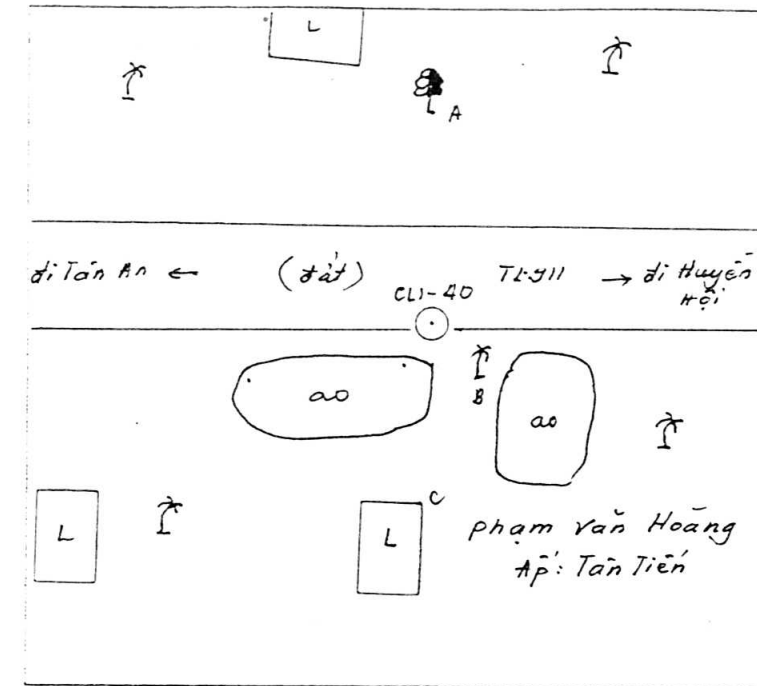 L
A
đi Tân An ← (đất) TL911 → đi Huyền Hội
CL1-40
B
ao
ao
C
L
L
Phạm Văn Hoàng
Ấp: Tân Tiến